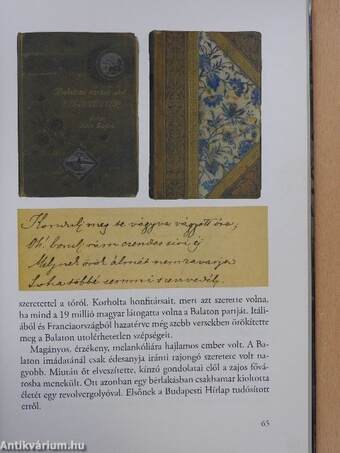 Balaton partjáról
Kondulj meg te vágyva vágyott óra,
Oh! borulj rám csendes síri éj
Melynek örök álmát nem zavarja
Soha többé semmi szenvedély.
szeretettel a tóról. Korholta honfitársait, mert azt szerette volna,
ha mind a 19 millió magyar látogatta volna a Balaton partját. Itáli-
ából és Franciaországból hazatérve még szebb versekben örökítette
meg a Balaton utolérhetetlen szépségeit.
Magányos, érzékeny, melankóliára hajlamos ember volt. A Ba-
laton imádatánál csak édesanyja iránti rajongó szeretete volt na-
gyobb. Miután őt elveszítette, kínzó gondolatai elől a zajos fővá-
rosba menekült. Ott azonban egy bérlakásban csakhamar kioltotta
életét egy revolvergolyóval. Elsőnek a Budapesti Hírlap tudósított
erről.
65
Antikvárium.hu